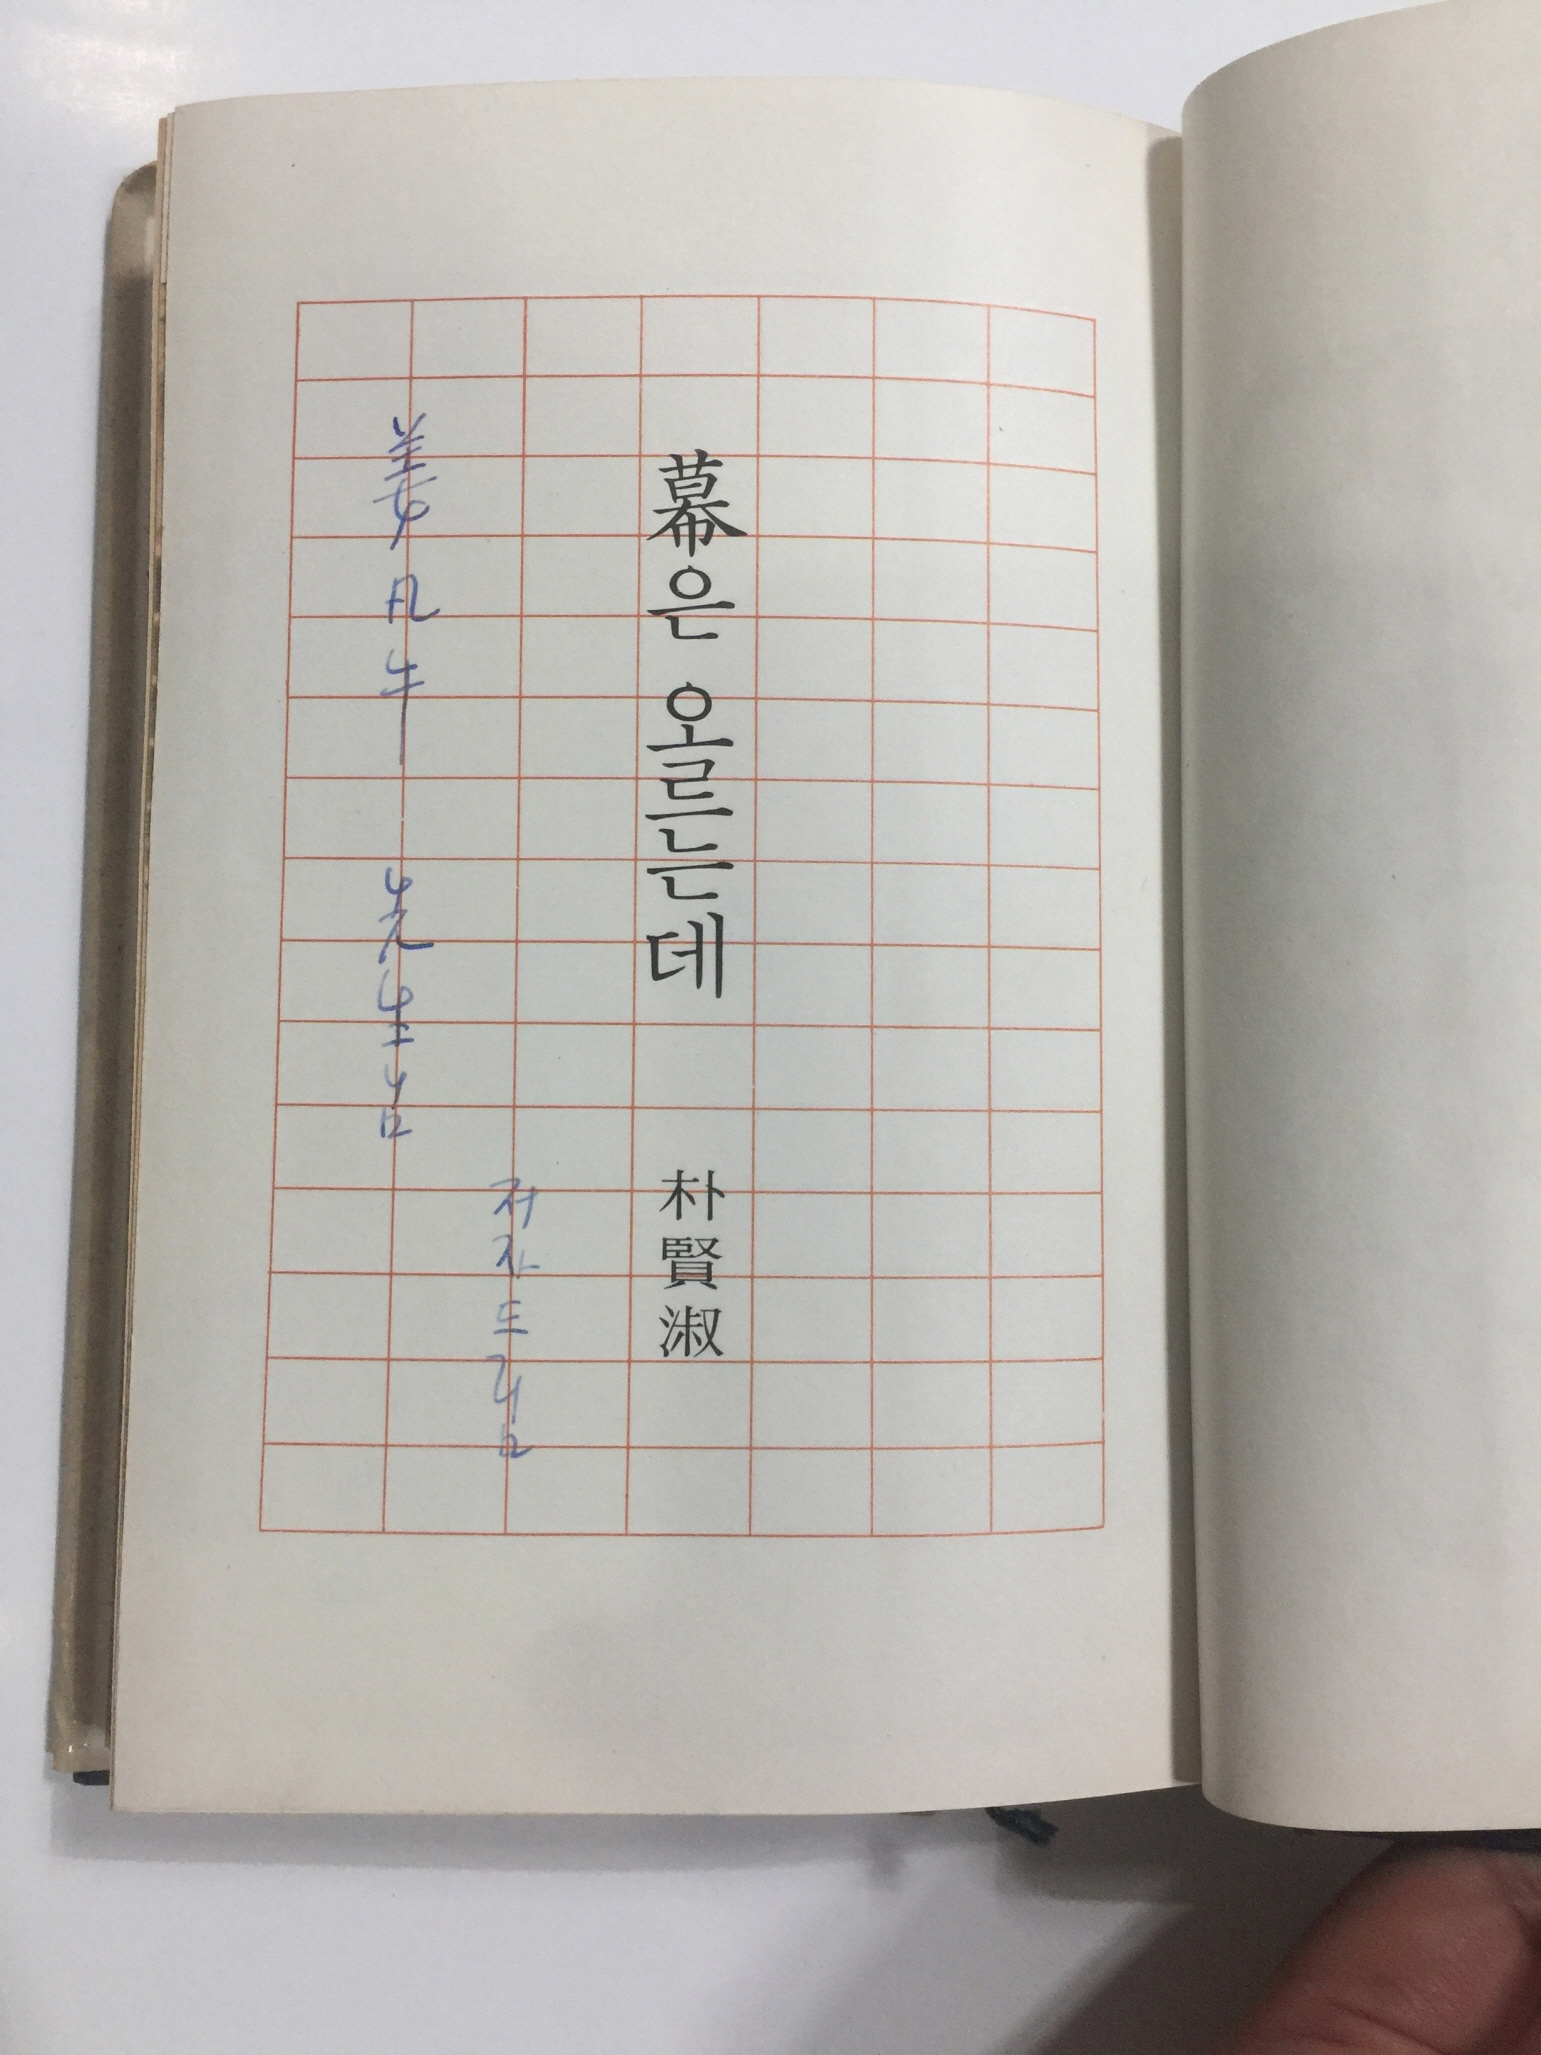 姜凡牛 先生님
저자드림
幕은 오르는데
朴賢淑